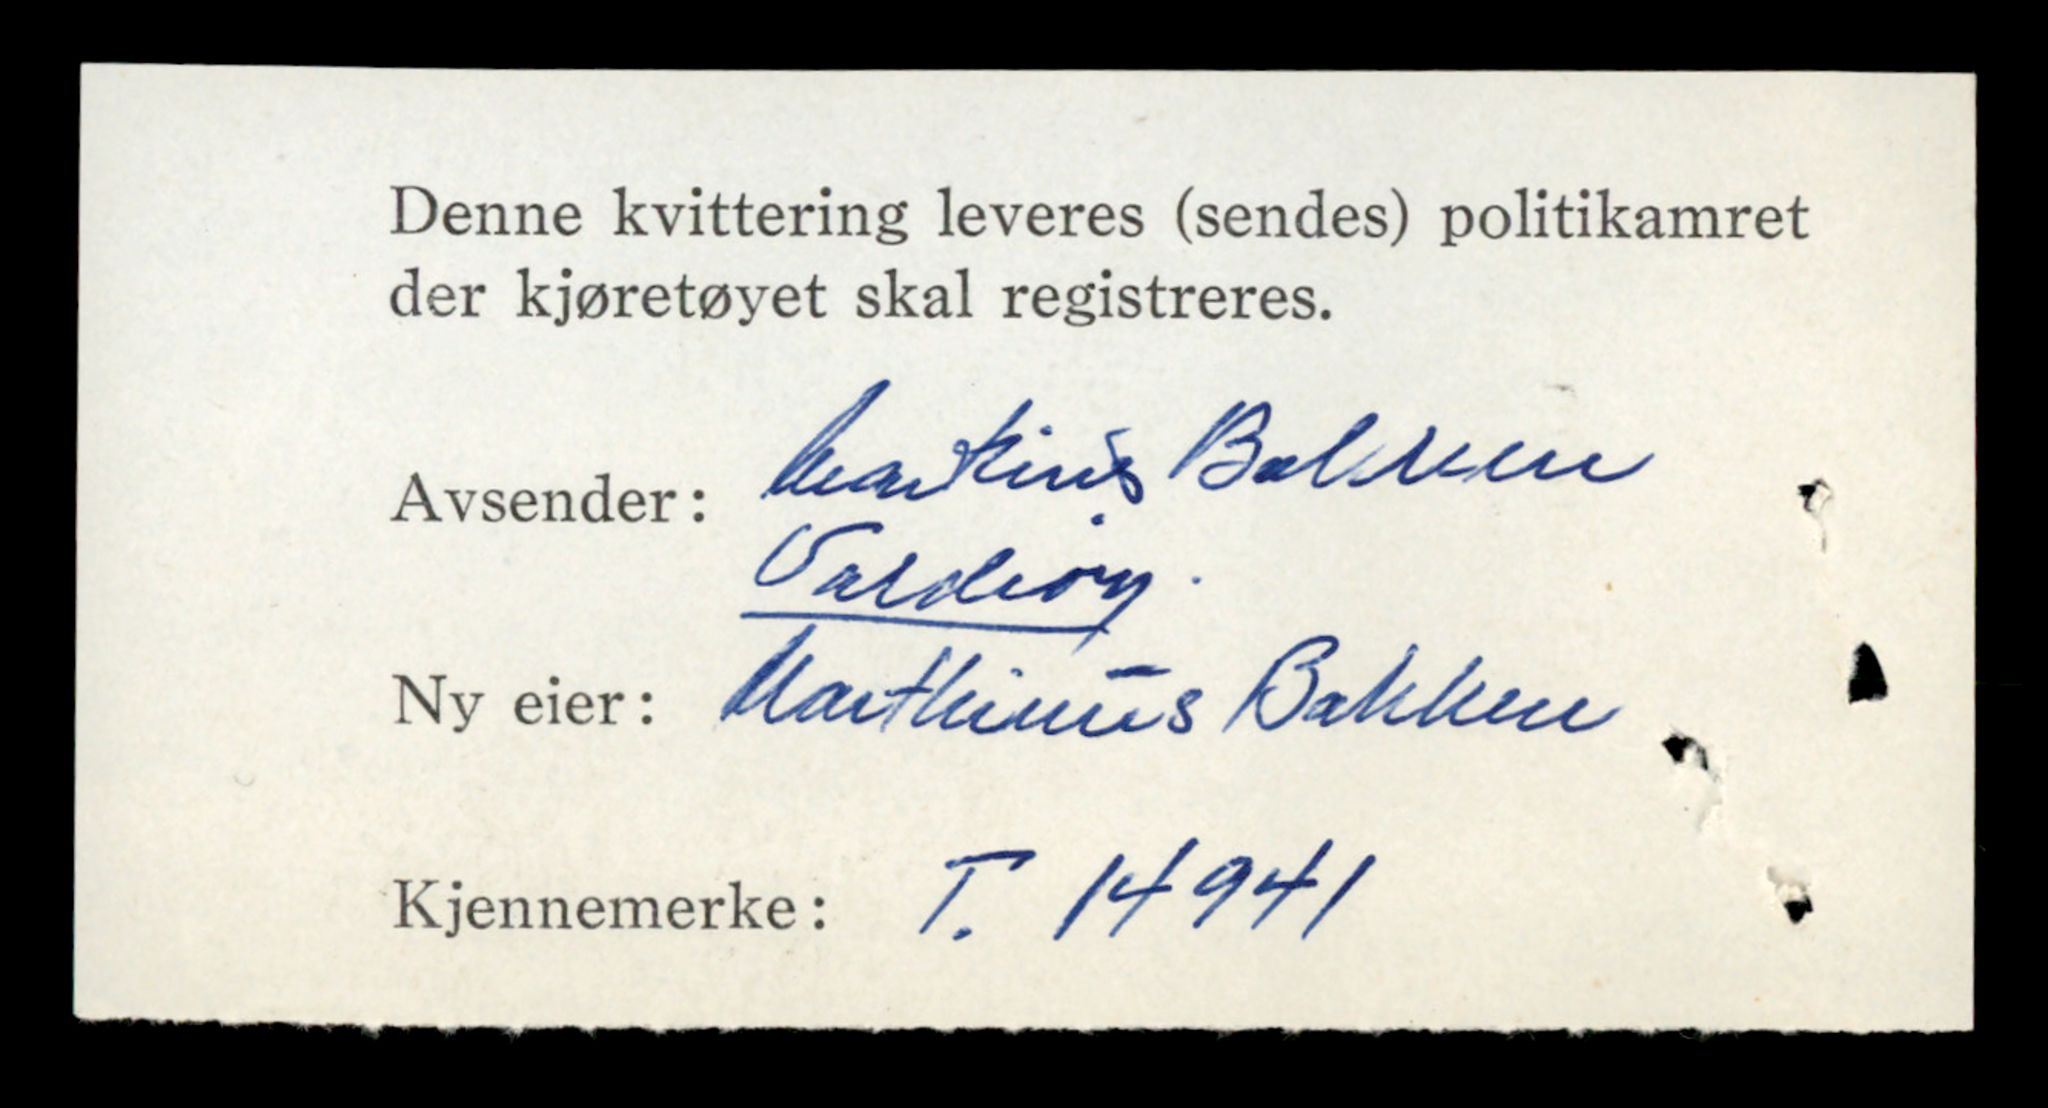 Denne kvittering leveres (sendes) politikamret
der kjøretøyet skal registreres.
Avsender: Martinus Bakken
Ny eier: Marthinus Bakken
Kjennemerke: T. 14941